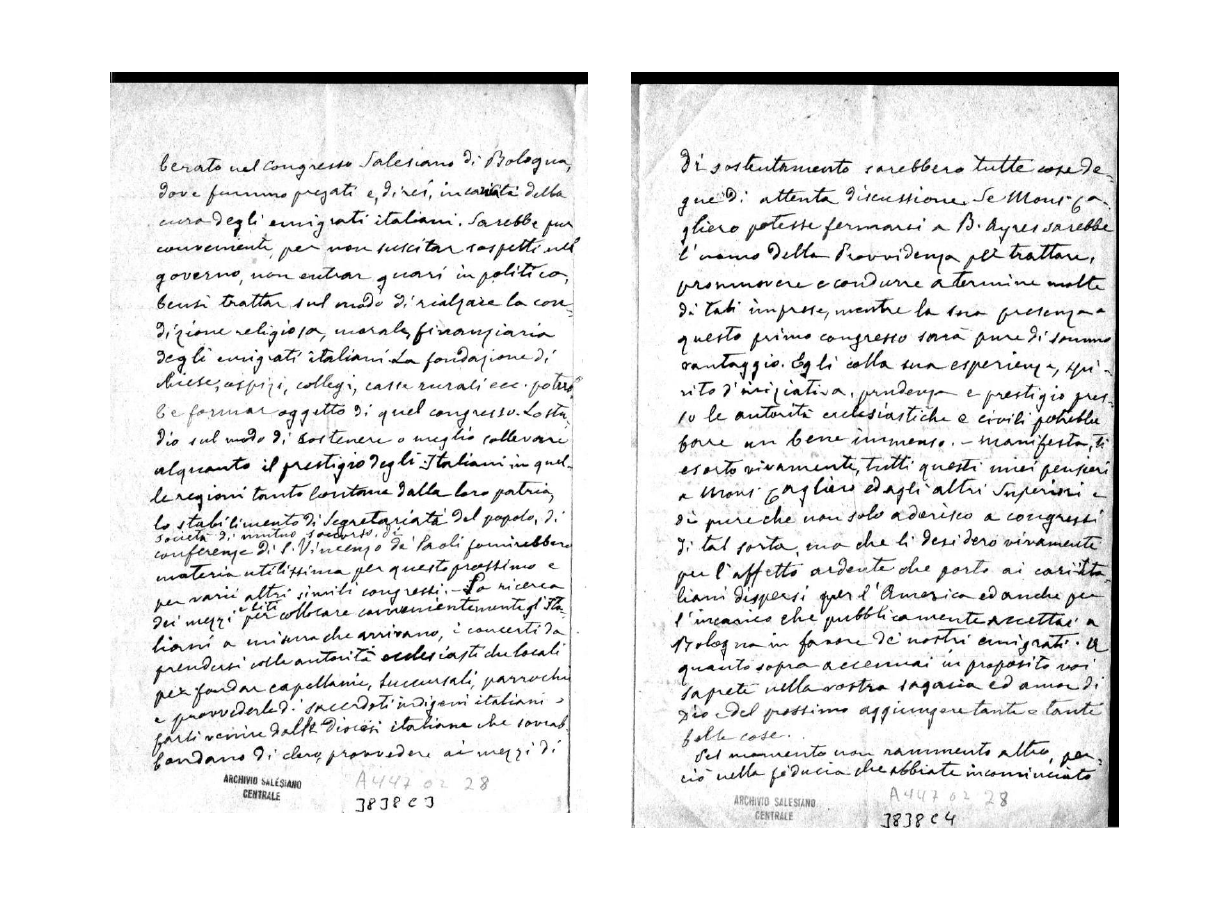 berato nel Congresso Salesiano di Bologna,
dove fummo pregati e, direi, incaricati della
cura degli emigrati italiani. Sarebbe pur
conveniente, per non suscitar sospetti nel
governo, non entrar quasi in politica,
bensì trattar sul modo di rialzare la con-
dizione religiosa, morale, finanziaria
degli emigrati italiani. La fondazione di
chiese, ospizi, collegi, casse rurali ecc. potreb
be formar oggetto di quel congresso. Lo stu-
dio sul modo di sostenere o meglio sollevare
alquanto il prestigio degli Italiani in quel-
le regioni tanto lontane dalla loro patria,
lo stabilimento di Segretariati del popolo, di
società di mutuo soccorso, di
conferenze di S. Vincenzo de' Paoli fornirebbero
materia utilissima per questo prossimo e
per varii altri simili congressi. - La ricerca
dei mezzi e siti per collocare convenientemente gl'Ita
liani a misura che arrivano, i concerti da
prendersi colle autorità ecclesiastiche locali
per fondar capellanie, succursali, parrochie
e provvederle di sacerdoti indigeni italiani o
farli venire dalle diocesi italiane che sovrab
bondano di clero, provvedere ai mezzi di
ARCHIVIO SALESIANO
CENTRALE
A447 02 28
3838 C3
di sostentamento sarebbero tutte cose de-
gne di attenta discussione. Se Mons. Ca-
gliero potesse fermarsi a B. Ayres sarebbe
l'uomo della Provvidenza per trattare,
promuovere e condurre a termine molte
di tali imprese, mentre la sua presenza a
questo primo congresso sarà pure di sommo
vantaggio. Egli colla sua esperienza, spi-
rito d'iniziativa, prudenza e prestigio pres-
so le autorità ecclesiastiche e civili potrebbe
farre un bene immenso. - Manifesta, ti
esorto vivamente, tutti questi miei pensieri
a Mons. Cagliero ed agli altri Superiori e
di' pure che non solo aderisco a congressi
di tal sorta, ma che li desidero vivamente
per l'affetto ardente che porto ai cari Ita-
liani dispersi per l'America ed anche per
l'incarico che pubblicamente accettai a
Bologna in favore de' nostri emigrati. A
quanto sopra accennai in proposito voi
saprete nella vostra sagacia ed amor di
Dio e del prossimo aggiungere tante e tante
belle cose.
Sul momento non rammento altro, per-
ciò nella fiducia che abbiate incominciato
ARCHIVIO SALESIANO
CENTRALE
A447 02 28
3838 C4